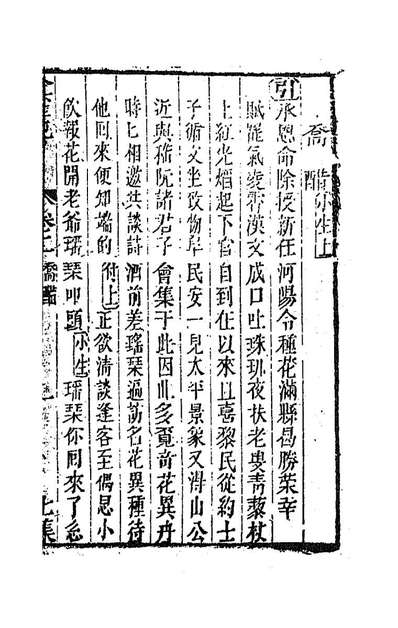 喬醋 小生上
引 承恩命除授新任河陽令種花滿縣曷勝榮幸
賦罷氣凌霄漢文成口吐珠璣夜扶老叟青藜杖
上紅光熖起下官自到任以來且喜黎民從約士
子循文坐致物阜民安一見太平景象又得山公
近與嵇阮諸君子會集于此因此多覓奇花異卉
時比相邀共談詩酒前差瑤琴遍訪名花異種待
他回來便知端的 付上 正欲清談逢客至偶思小
飲報花開老爺瑤琴叩頭 小生 瑤琴你回來了怎
卷二 喬醋 七集